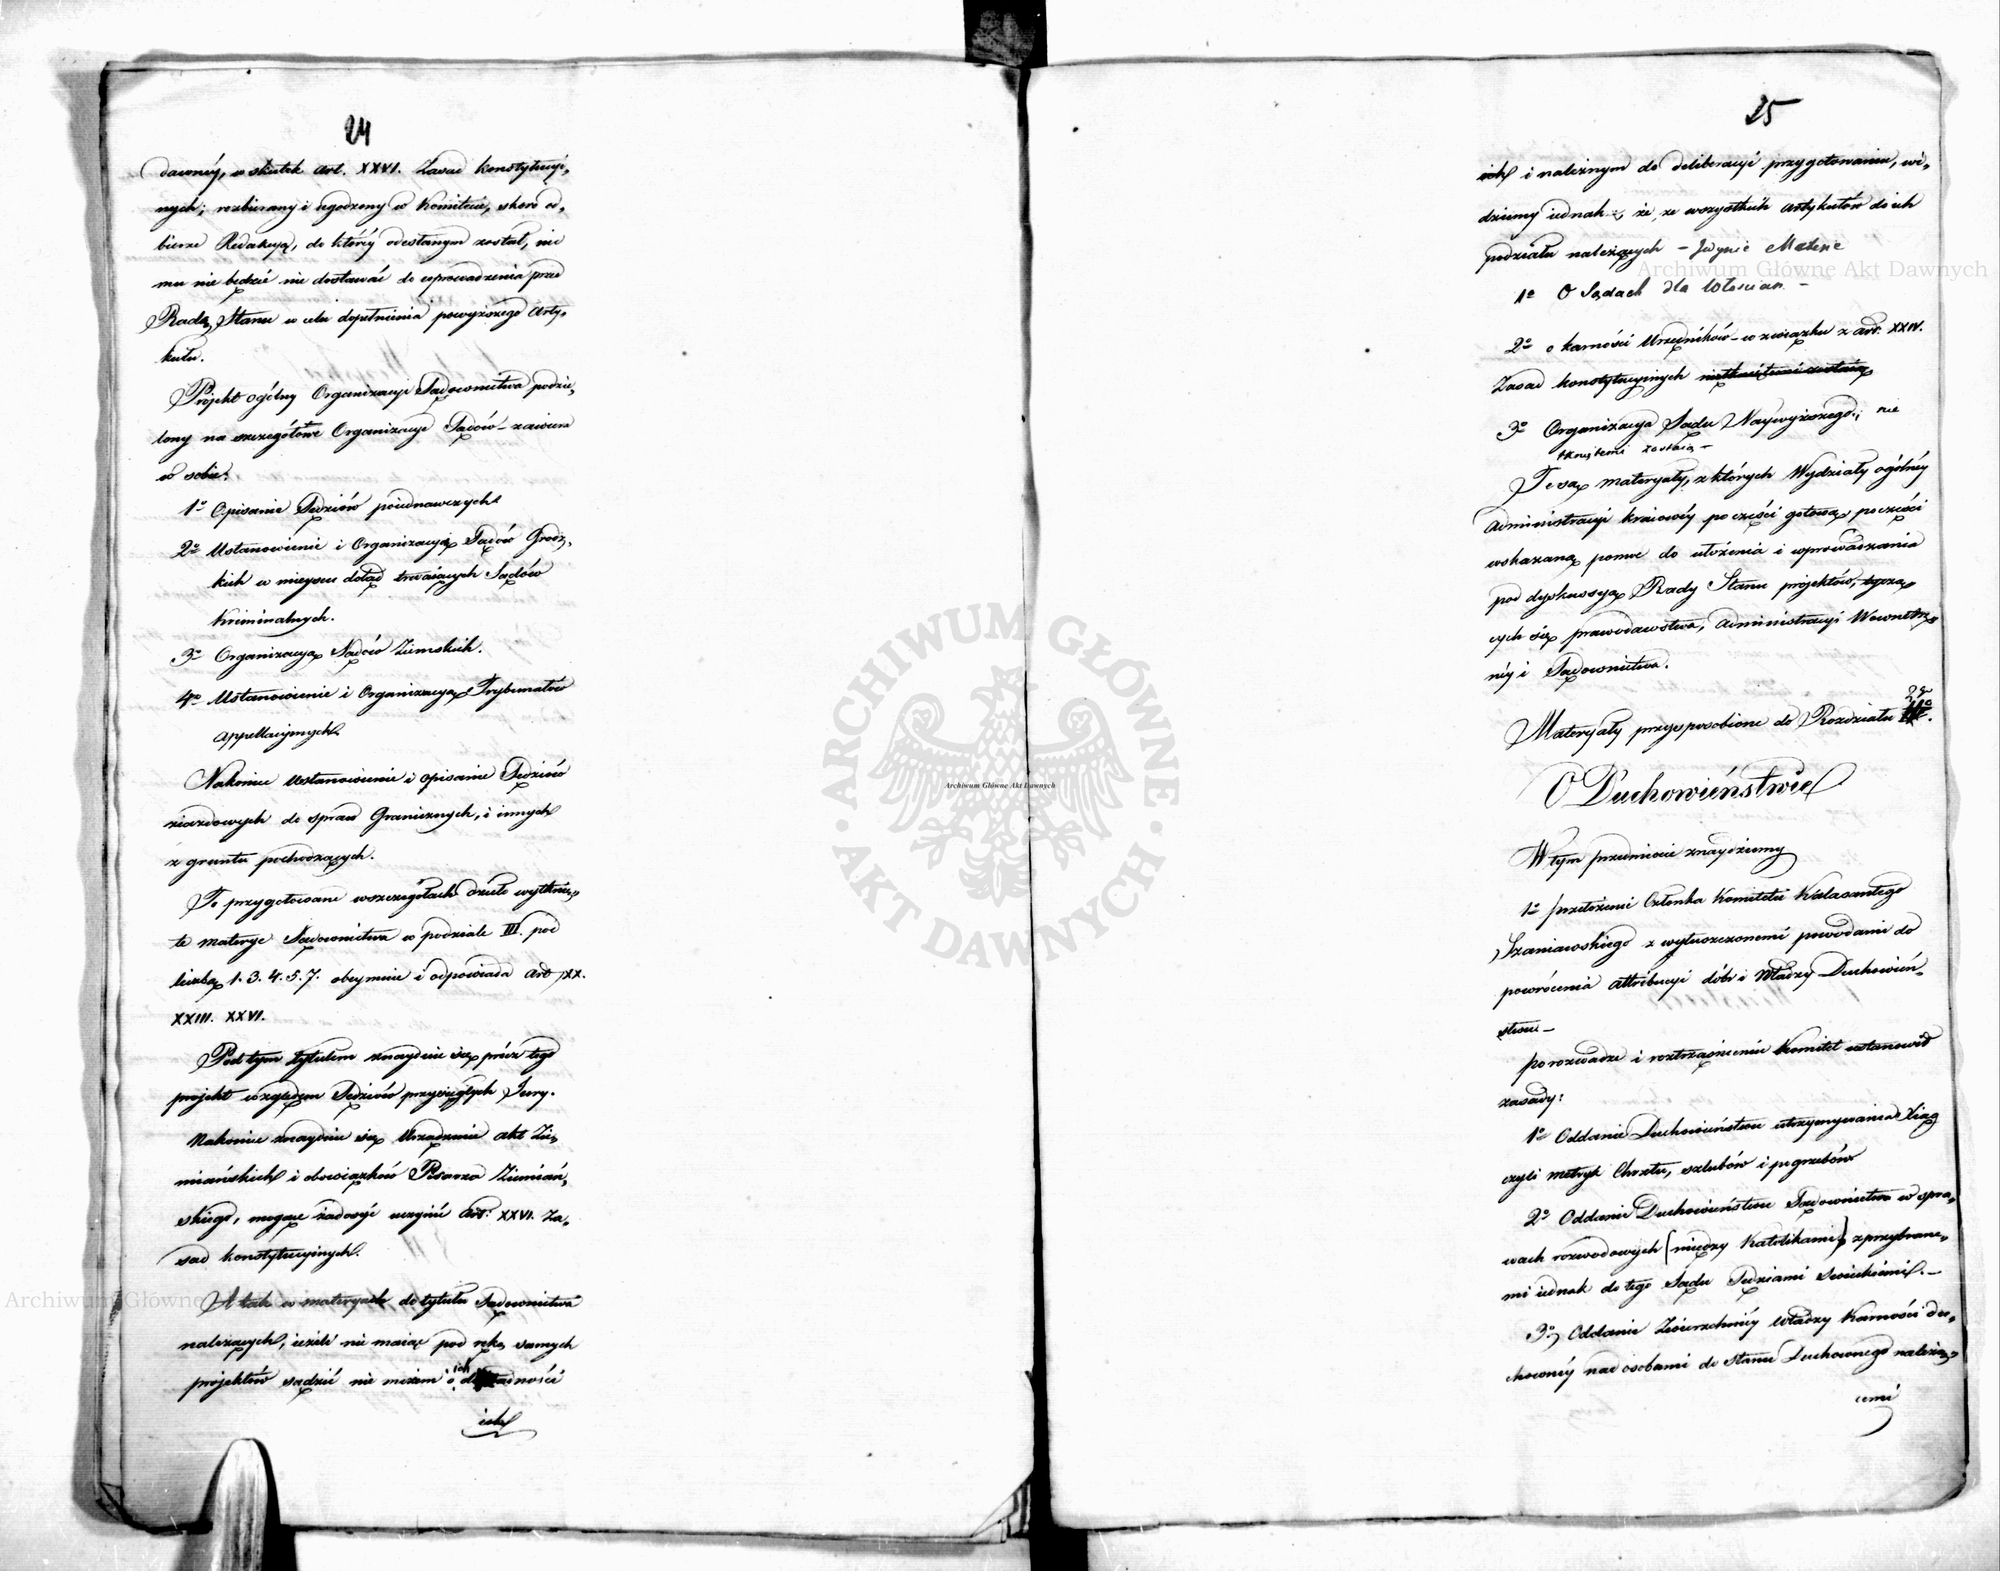 24
dawnéy, w skutek Art. XXVI. Zasad konstytucyi-
nych; rozbierany i ugodzony w Komitecie, skoro od-
bierze Redakcyą, do któréy odesłanym został, nic
mu nie będzie nie dostawać do wprowadzenia przed
Radę Stanu w celu dopełnienia powyższego Arty-
kułu.
Projekt ogólny Organizacyi Sądownictwa podzie-
lony na szczegółowe Organizacye Sądów - zawiera
w sobie:
1º Opisanie Sędziów poiednawczych
2º Ustanowienie i Organizacyą Sądów Grodz-
kich w mieysce dotąd trwaiących Sądów
Kriminalnych.
3º Organizacyą Sądów Ziemskich.
4º Ustanowienie i Organizacyą Trybunałów
appellacyinych.
Nakoniec Ustanowienie i opisanie Sędziów
ziazdowych do spraw Granicznych, i innych
z gruntu pochodzących.
To przygotowane w szczegółach dzieło wytknię-
te materye Sądownictwa w podziale III. pod
liczbą 1. 3. 4. 5. 7. obeymuie i odpowiada Art. XX.
XXIII. XXVI.
Pod tym tytułem znayduie się prócz tego
projekt względem Sędziów przysięgłych Jury.
Nakoniec znayduie się Urządzenie akt Zie-
miańskich i obowiązków Pisarza Ziemiań-
skiego, mogące zadosyć uczynić Art. XXVI. Za-
sad konstytucyinych.
A tak w materyach do tytułu Sądownictwa
należących, ieżeli nie maiąc pod ręką samych
projektów sądzić nie możem o ich
ich
25
ich i należnym do deliberacyi przygotowaniu, wi-
dziemy iednak, że ze wszystkich Artykułów do ich
podziału należących - Jedynie Materie
1º O Sądach dla Włościan -
2º o karności Urzędników - w związku z Art. XXIV.
Zasad konstytucyinych nietkniętemi zostaią
3º Organizacya Sądu Naywyższego; nie
tkniętemi zostaią -
Te są materyały, z których Wydziały ogólnéy
Administracyi kraiowéy po części gotową, po części
wskazaną pomoc do ułożenia i wprowadzania
pod dyskussyą Rady Stanu projektów, tyczą-
cych się prawodawstwa, Administracyi Wewnętrz-
néy i Sądownictwa.
Materyały przysposobione do Rozdziału 2go.
O Duchowieństwie
W tym przedmiocie znaydziemy
1º przełożenie Członka Komitetu Kalasantego
Szaniawskiego z wyłuszczonemi powodami do
powrócenia attribucyi dóbr i Władzy Duchowień-
stwu -
po rozwadze i roztrząśnieniu Komitet ustanowił
zasady:
1º Oddanie Duchowieństwu utrzymywania Xiąg
czyli metryk Chrztu, szlubów i pogrzebów
2º Oddanie Duchowieństwu Sądownictwa w spra-
wach rozwodowych (między Katolikami) z przybrane-
mi iednak do tego Sądu Sędziami Swieckiemi. -
3º, Oddanie Zwierzchniéy Władzy Karności du-
chownéy nad osobami do stanu Duchownego należą-
cemi